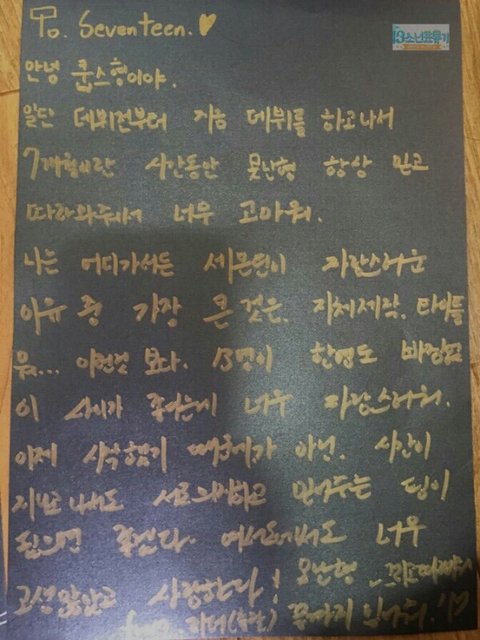 To. Seventeen. ♥
13소년표류기
안녕 쿱스형이야.
일단 데뷔전부터 지금 데뷔를 하고나서
7개월이란 시간동안 못난형 항상 믿고
따라와주어서 너무 고마워.
나는 어디가서든 세븐틴이 자랑스러운
이유 중 가장 큰 것은. 자체제작, 타이틀
뭐... 이런것 보다. 13명이 한명도 빠짐없
이 사이가 좋다는게 너무 자랑스러워.
이제 시작했기 때문에가 아닌. 시간이
지나도 서로의지하고 믿어주는 팀이
됐으면 좋겠다. 여서
너무
고생많았고 사랑한다! 못난형
끝까지 믿어줘. 17